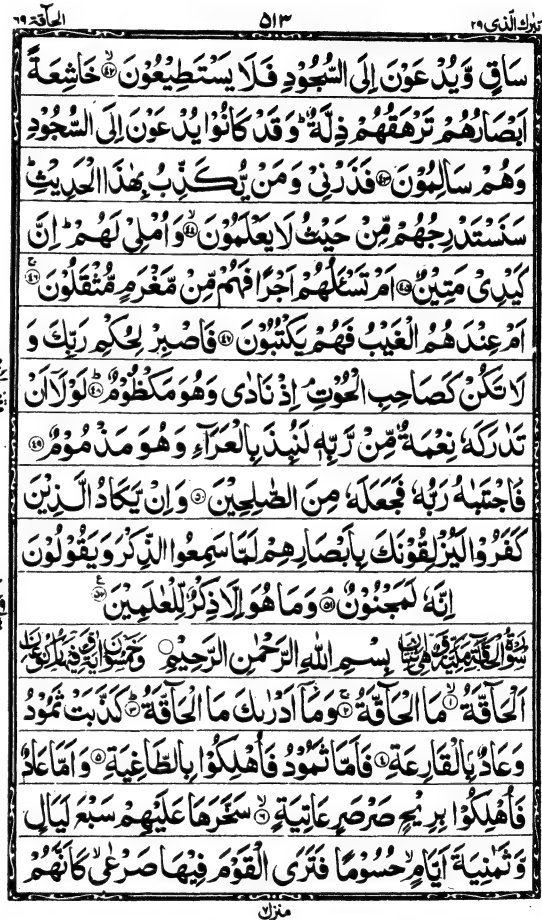 تبرك الذى ٢٩ ٥١٣ الحآقة ٦٩
سَاقٍ وَّيُدْعَوْنَ اِلَى السُّجُوْدِ فَلَا يَسْتَطِيْعُوْنَ ﴿٤٢﴾ خَاشِعَةً
اَبْصَارُهُمْ تَرْهَقُهُمْ ذِلَّةٌ ؕ وَقَدْ كَانُوْا يُدْعَوْنَ اِلَى السُّجُوْدِ
وَهُمْ سَالِمُوْنَ ﴿٤٣﴾ فَذَرْنِىْ وَمَنْ يُّكَذِّبُ بِهٰذَا الْحَدِيْثِ ؕ
سَنَسْتَدْرِجُهُمْ مِّنْ حَيْثُ لَا يَعْلَمُوْنَ ﴿٤٤﴾ وَاُمْلِىْ لَهُمْ ؕ اِنَّ
كَيْدِىْ مَتِيْنٌ ﴿٤٥﴾ اَمْ تَسْـَٔلُهُمْ اَجْرًا فَهُمْ مِّنْ مَّغْرَمٍ مُّثْقَلُوْنَ ﴿٤٦﴾
اَمْ عِنْدَهُمُ الْغَيْبُ فَهُمْ يَكْتُبُوْنَ ﴿٤٧﴾ فَاصْبِرْ لِحُكْمِ رَبِّكَ وَ
لَا تَكُنْ كَصَاحِبِ الْحُوْتِ ۘ اِذْ نَادٰى وَهُوَ مَكْظُوْمٌ ﴿٤٨﴾ لَوْلَاۤ اَنْ
تَدٰرَكَهٗ نِعْمَةٌ مِّنْ رَّبِّهٖ لَنُبِذَ بِالْعَرَآءِ وَهُوَ مَذْمُوْمٌ ﴿٤٩﴾
فَاجْتَبٰىهُ رَبُّهٗ فَجَعَلَهٗ مِنَ الصّٰلِحِيْنَ ﴿٥٠﴾ وَاِنْ يَّكَادُ الَّذِيْنَ
كَفَرُوْا لَيُزْلِقُوْنَكَ بِاَبْصَارِهِمْ لَمَّا سَمِعُوا الذِّكْرَ وَيَقُوْلُوْنَ
اِنَّهٗ لَمَجْنُوْنٌ ﴿٥١﴾ وَمَا هُوَ اِلَّا ذِكْرٌ لِّلْعٰلَمِيْنَ ﴿٥٢﴾
سُوْرَةُ الْحَآقَّةِ مَكِّيَّةٌ وَّهِىَ بِسْمِ اللّٰهِ الرَّحْمٰنِ الرَّحِيْمِ وَخَمْسُوْنَ اٰيَةً وَّفِيْهَا رُكُوْعَانِ
اَلْحَآقَّةُ ﴿١﴾ مَا الْحَآقَّةُ ﴿٢﴾ وَمَاۤ اَدْرٰىكَ مَا الْحَآقَّةُ ﴿٣﴾ كَذَّبَتْ ثَمُوْدُ
وَعَادٌۢ بِالْقَارِعَةِ ﴿٤﴾ فَاَمَّا ثَمُوْدُ فَاُهْلِكُوْا بِالطَّاغِيَةِ ﴿٥﴾ وَاَمَّا عَادٌ
فَاُهْلِكُوْا بِرِيْحٍ صَرْصَرٍ عَاتِيَةٍ ﴿٦﴾ سَخَّرَهَا عَلَيْهِمْ سَبْعَ لَيَالٍ
وَّثَمٰنِيَةَ اَيَّامٍ ۙ حُسُوْمًا فَتَرَى الْقَوْمَ فِيْهَا صَرْعٰى ۙ كَاَنَّهُمْ
منزل ٧